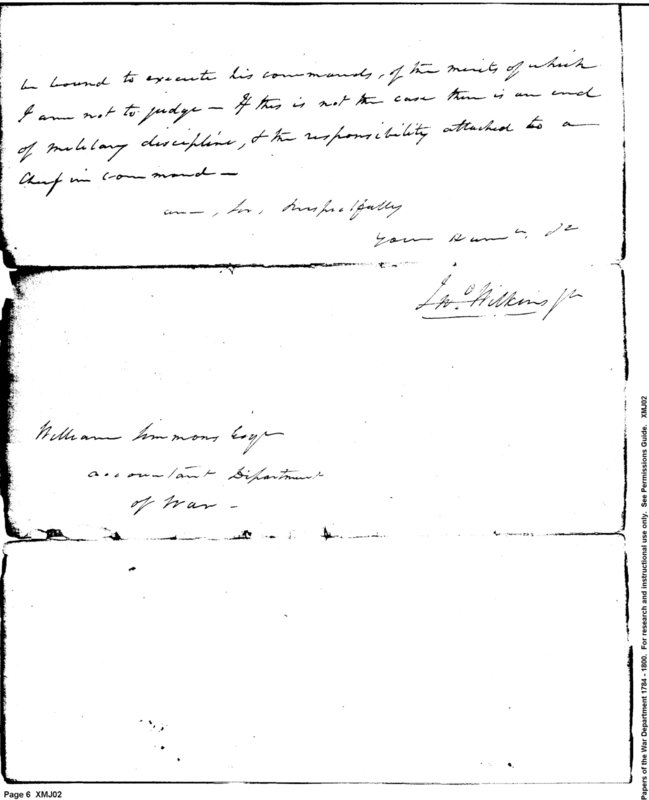 be bound to execute his commands, of the merits of which
I am not to judge — If this is not the case there is an end
of military discipline, & the responsibility attached to a
Chief in command —
am, Sir, Respectfully
Your
Jnº. Wilkins Jr
William Simmons Esqr
accountant Department
of War —
Page 6 XMJ02
Papers of the War Department 1784 - 1800. For research and instructional use only. See Permissions Guide. XMJ02